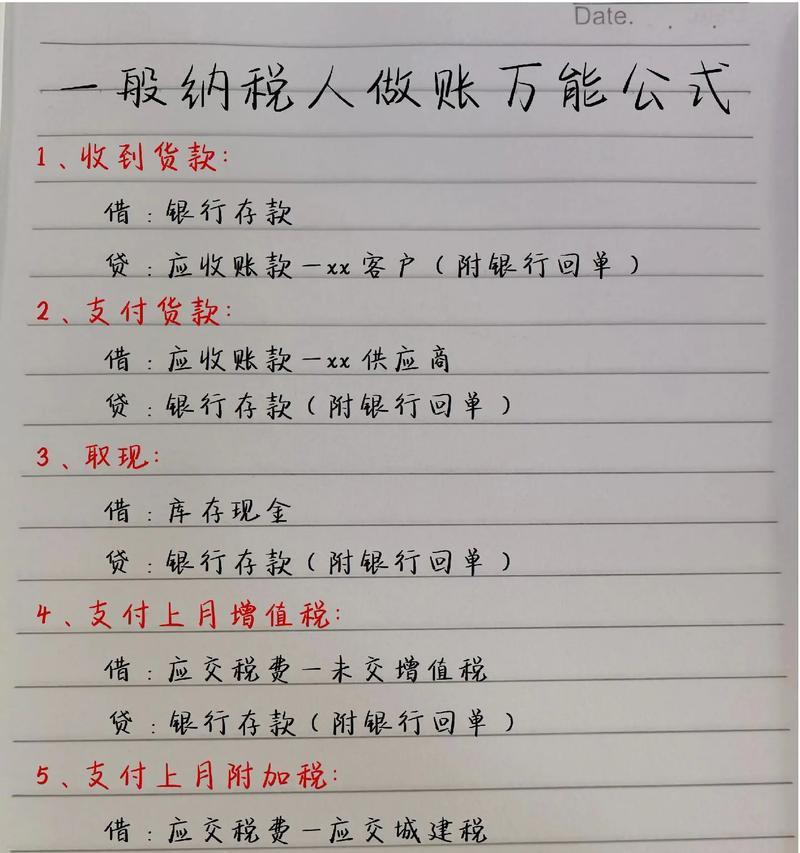 Date.
一般纳税人做账万能公式
1、收到货款:
借:银行存款
贷:应收账款一xx客户(附银行回单)
2、支付货款:
借:应收账款一xx供应商
贷:银行存款(附银行回单)
3、取现:
借:库存现金
贷:银行存款(附银行回单)
4、支付上月增值税:
借:应交税费一未交增值税
贷:银行存款(附银行回单)
5、支付上月附加税:
借:应交税费一应交城建税